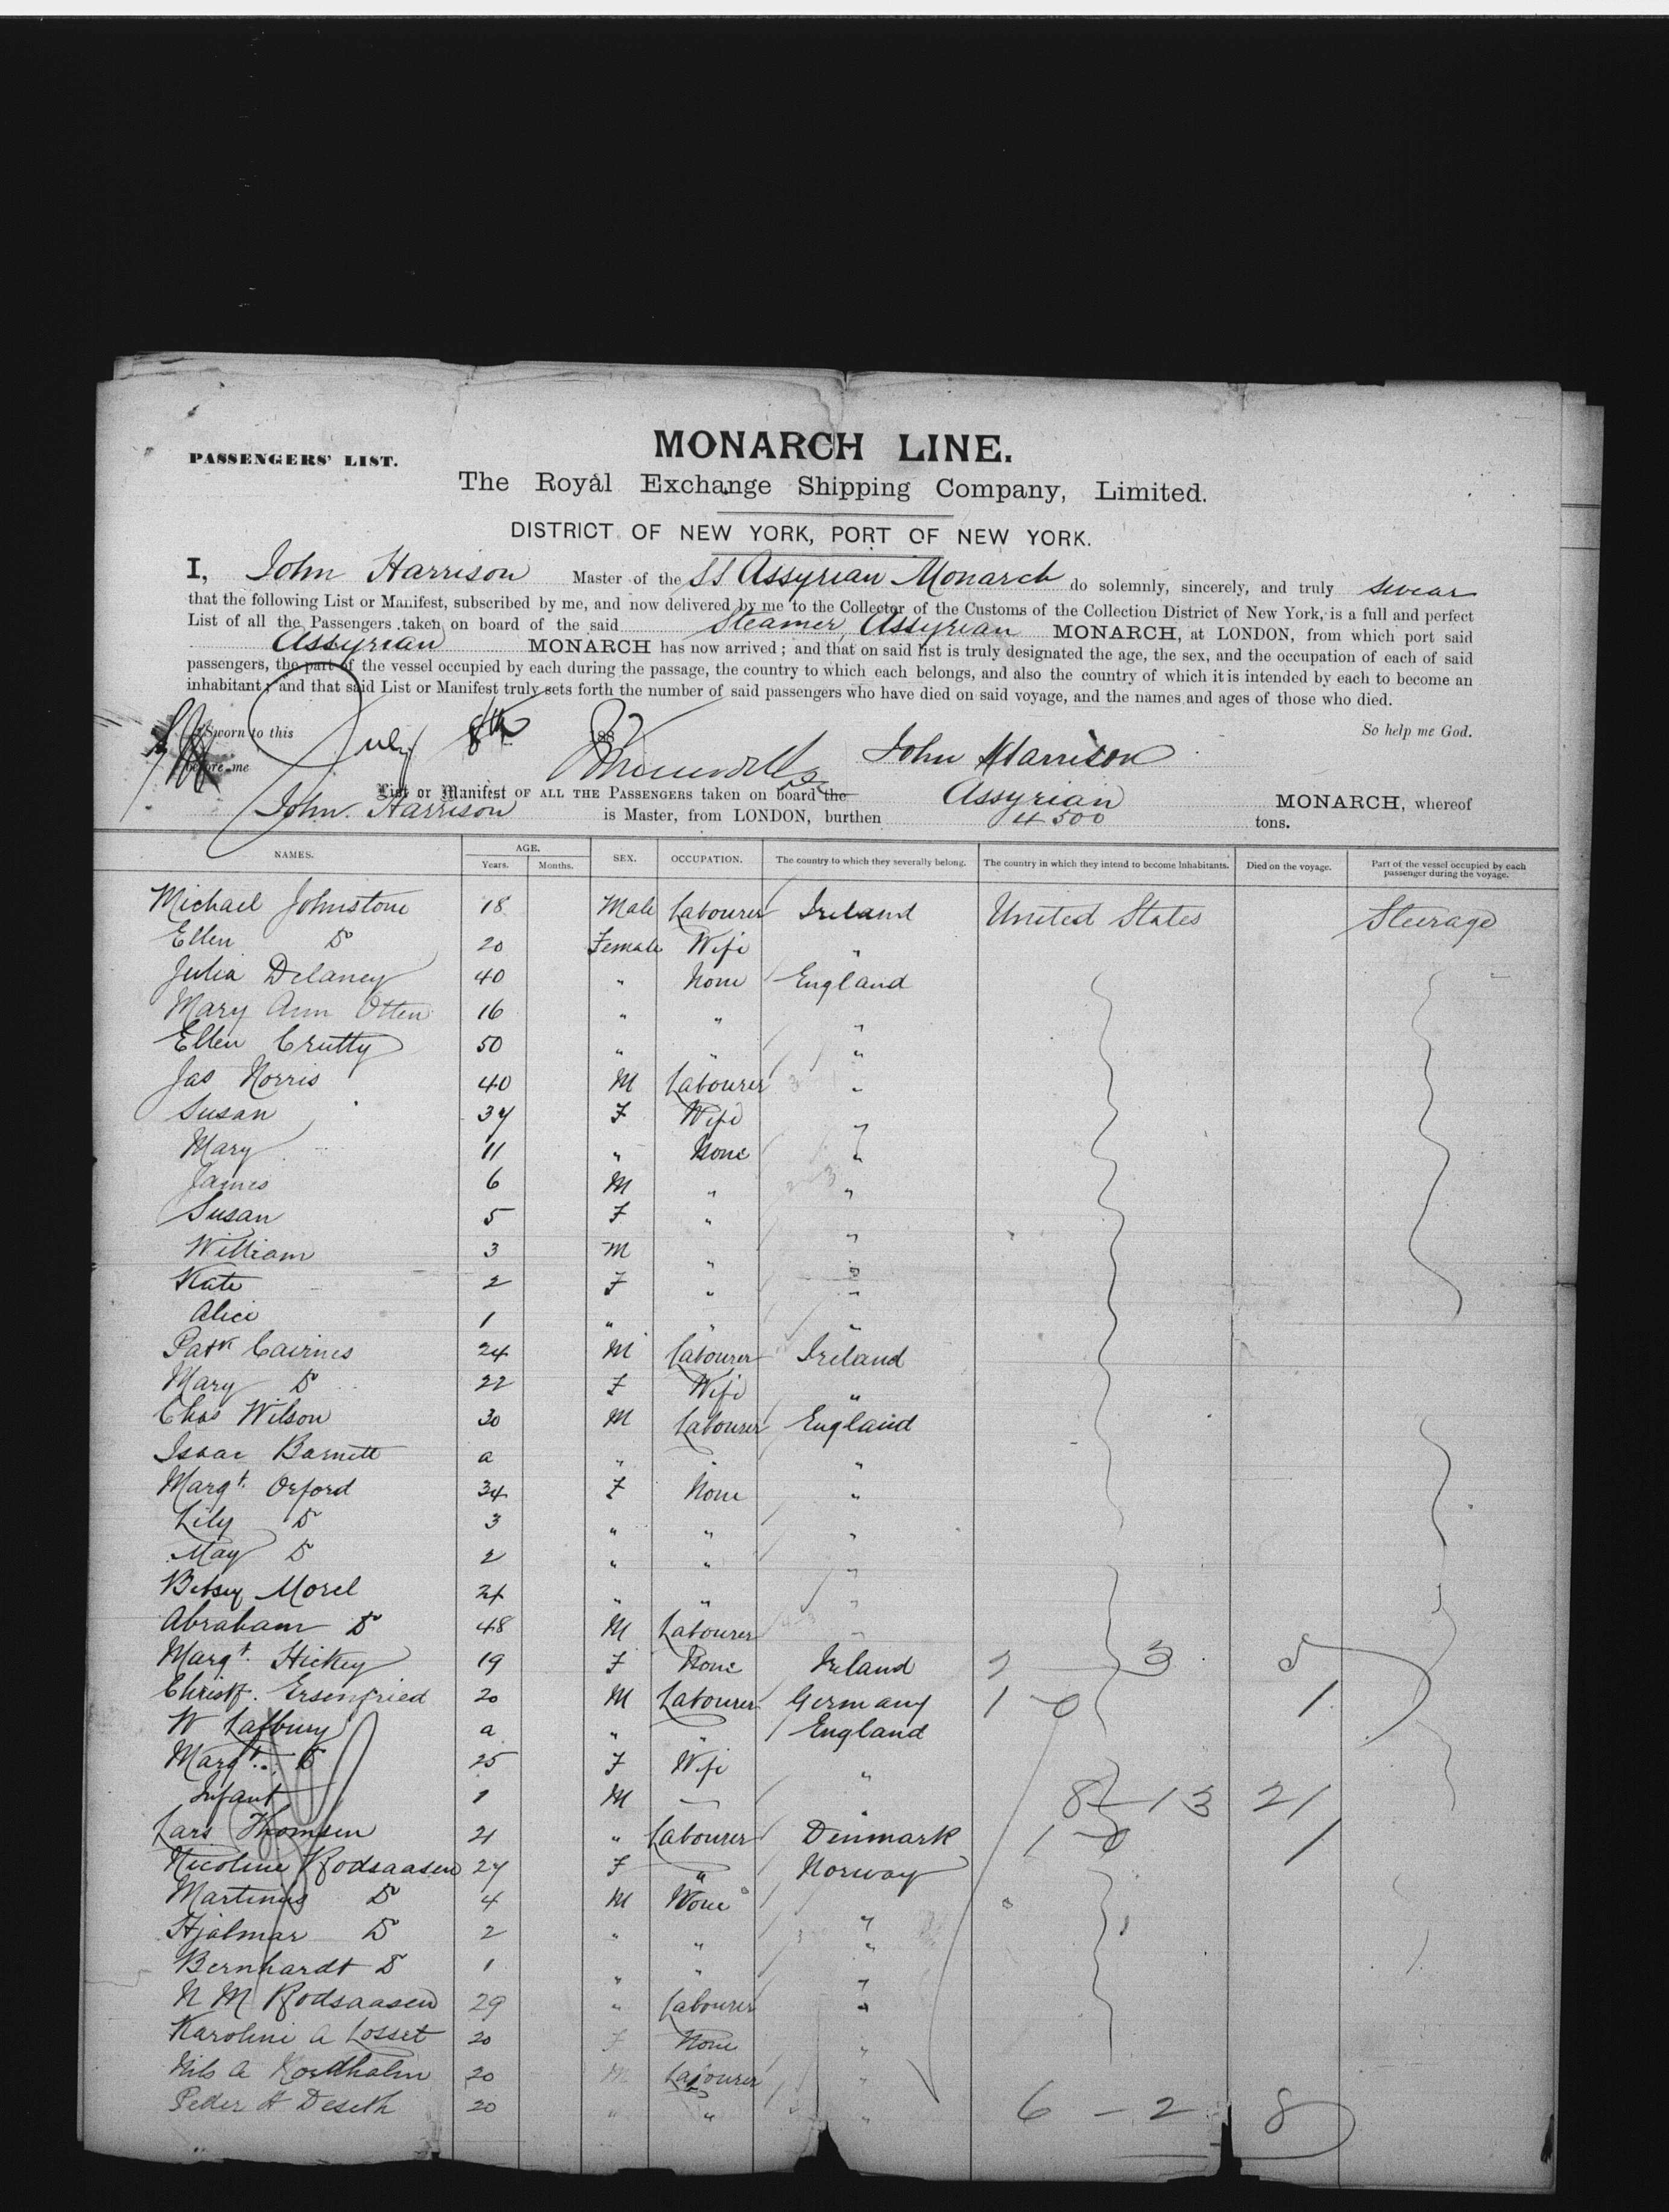 PASSENGERS' LIST.
MONARCH LINE.
The Royal Exchange Shipping Company, Limited.
DISTRICT OF NEW YORK, PORT OF NEW YORK.
I, John Harrison Master of the SS Assyrian Monarch do solemnly, sincerely, and truly swear
that the following List or Manifest, subscribed by me, and now delivered by me to the Collector of the Customs of the Collection District of New York, is a full and perfect
List of all the Passengers taken on board of the said Steamer, Assyrian MONARCH, at LONDON, from which port said
Assyrian MONARCH has now arrived; and that on said list is truly designated the age, the sex, and the occupation of each of said
passengers, the part of the vessel occupied by each during the passage, the country to which each belongs, and also the country of which it is intended by each to become an
inhabitant; and that said List or Manifest truly sets forth the number of said passengers who have died on said voyage, and the names and ages of those who died.
Sworn to this July 8th 188 So help me God.
before me John Harrison
List or Manifest OF ALL THE PASSENGERS taken on board the Assyrian MONARCH, whereof
John Harrison is Master, from LONDON, burthen 4500 tons.
NAMES. AGE. Years. Months. SEX. OCCUPATION. The country to which they severally belong. The country in which they intend to become Inhabitants. Died on the voyage. Part of the vessel occupied by each passenger during the voyage.
Michael Johnstone 18 Male Labourer Ireland United States Steerage
Ellen Do 20 Female Wife "
Julia Delaney 40 " None England
Mary Ann Otten 16 " " "
Ellen Crutty 50 " " "
Jas Norris 40 M Labourer "
Susan 37 F Wife "
Mary 11 " None "
James 6 M " "
Susan 5 F " "
William 3 M " "
Kate 2 F " "
Alice 1 " " "
Patk Cairnes 24 M Labourer Ireland
Mary Do 22 F Wife "
Chas Wilson 30 M Labourer England
Isaac Barnett a " " "
Margt. Orford 34 F None "
Lily Do 3 " " "
May Do 2 " " "
Betsey Morel 24 " " "
Abraham Do 48 M Labourer "
Margt. Hickey 19 F None Ireland 2 3 5
Christf. Ersenfried 20 M Labourer Germany 1 - 0 1
W Latbury a " " England
Margt. Do 25 F Wife "
Infant 1 M — " 8 - 13 21
Lars Thomsen 21 " Labourer Denmark 1 - 0 1
Nicoline Rodsaasen 27 F " Norway
Martinus Do 4 M None "
Hjalmar Do 2 " " "
Bernhardt Do 1 " " "
N M Rodsaasen 29 " Labourer "
Karoline A Losset 20 F None "
Nils A Nordholm 20 M Labourer "
Peder H Deseth 20 " " " 6 - 2 8